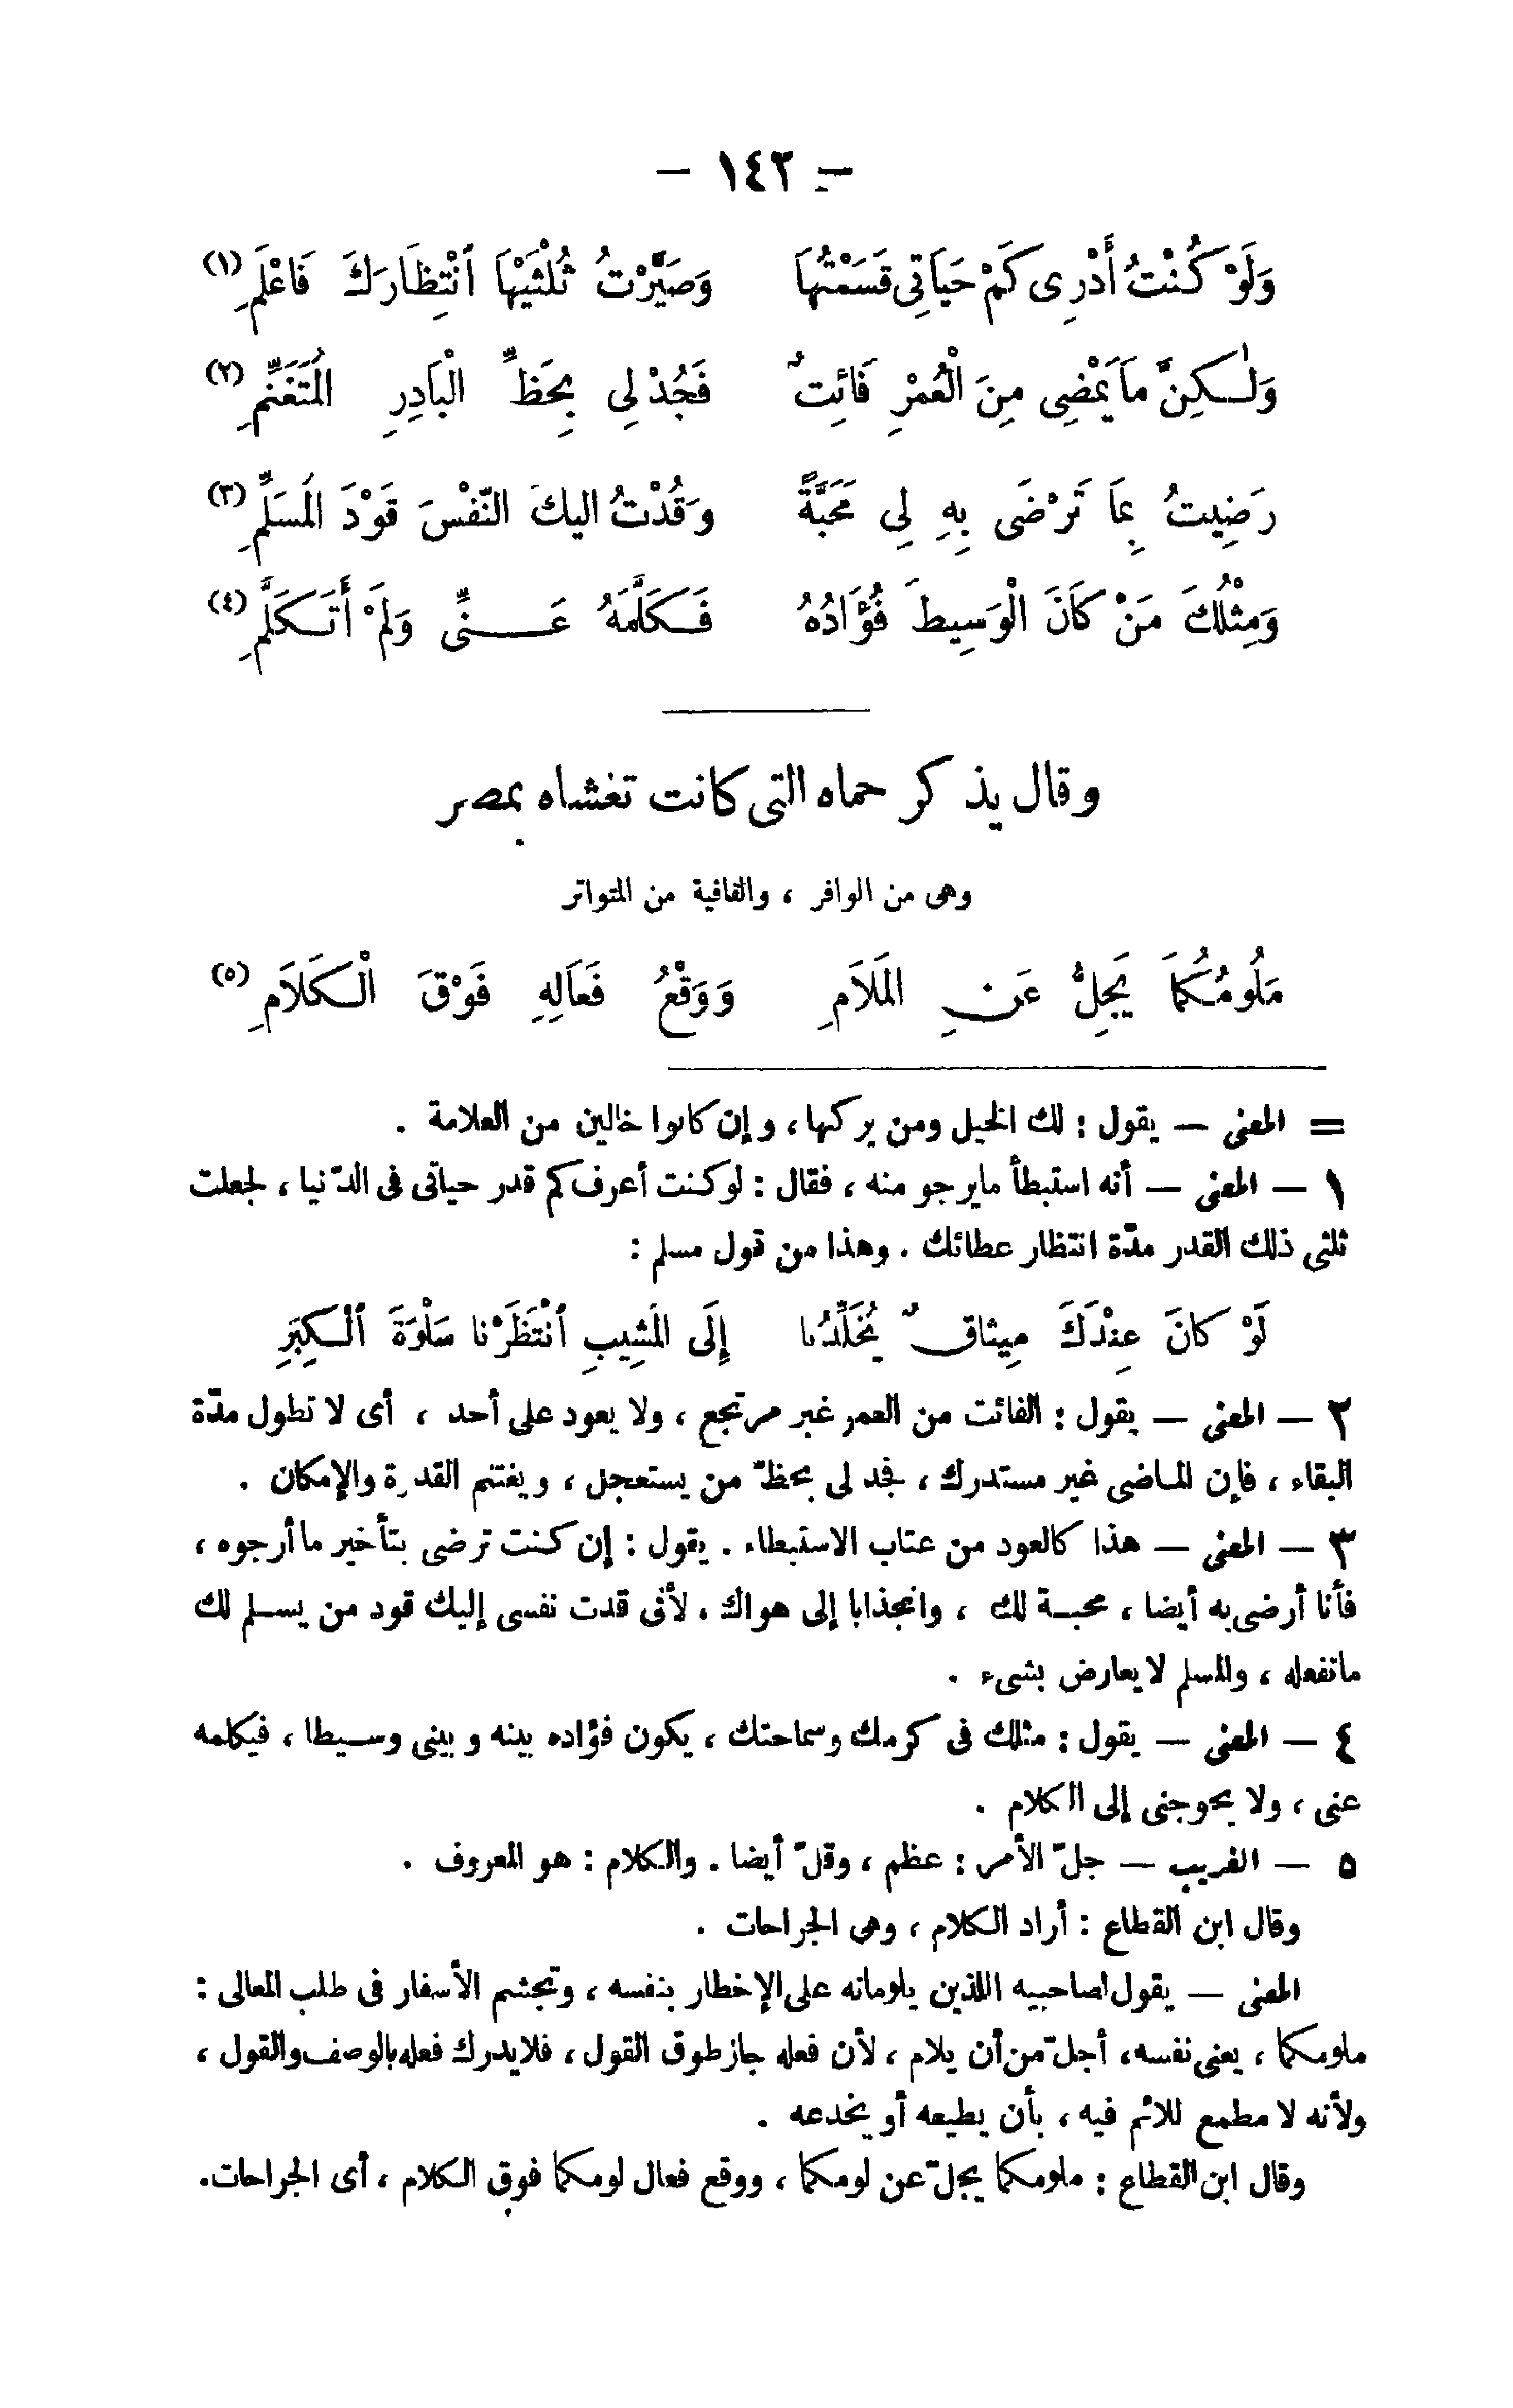 — ١٤٢ —
وَلَوْ كُنْتُ أَدْرِى كَمْ حَيَاتِى قَسَمْتُهَا وَصَيَّرْتُ ثُلْثَيْهَا ٱنْتِظَارَكَ فَاعْلَمِ (١)
وَلٰكِنَّ مَا يَمْضِى مِنَ الْعُمْرِ فَائِتٌ فَجُدْ لِى بِحَظِّ الْبَادِرِ الْمُتَغَنِّمِ (٢)
رَضِيتُ بِمَا تَرْضَى بِهِ لِى مَحَبَّةً وَقُدْتُ اليكَ النَّفْسَ قَوْدَ الْمُسَلِّمِ (٣)
وَمِثْلُكَ مَنْ كَانَ الْوَسِيطَ فُؤَادُهُ فَكَلَّمَهُ عَنِّى وَلَمْ أَتَكَلَّمِ (٤)
وقال يذكر حماه التى كانت تغشاه بمصر
وهى من الوافر ، والقافية من المتواتر
مَلُومُكُمَا يَجِلُّ عَنِ الْمَلَامِ وَوَقْعُ فَعَالِهِ فَوْقَ الْكَلَامِ (٥)
= المعنى — يقول : لك الخيل ومن يركبها ، وإن كانوا خالين من العلامة .
١ — المعنى — أنه استبطأ مايرجو منه ، فقال : لو كنت أعرف كم قدر حياتى فى الدّنيا ، لجعلت
ثلثى ذلك القدر مدّة انتظار عطائك . وهذا من قول مسلم :
لَوْ كانَ عِنْدَكَ مِيثاقٌ يُخَلِّدُنا إِلَى الْمَشِيبِ ٱنْتَظَرْنا سَلْوَةَ ٱلْكِبَرِ
٢ — المعنى — يقول : الفائت من العمر غير مرتجع ، ولا يعود على أحد ، أى لا تطول مدّة
البقاء ، فإن الماضى غير مستدرك ، فجد لى بحظّ من يستعجل ، ويغتنم القدرة والإمكان .
٣ — المعنى — هذا كالعود من عتاب الاستبطاء . يقول : إن كنت ترضى بتأخير ما أرجوه ،
فأنا أرضى به أيضا ، محبة لك ، وانجذابا إلى هواك ، لأنى قدت نفسى إليك قود من يسلم لك
ماتفعله ، والمسلم لا يعارض بشىء .
٤ — المعنى — يقول : مثلك فى كرمك وسماحتك ، يكون فؤاده بينه وبينى وسيطا ، فيكلمه
عنى ، ولا يحوجنى إلى الكلام .
٥ — الغريب — جلّ الأمر : عظم ، وقلّ أيضا . والكلام : هو المعروف .
وقال ابن القطاع : أراد الكلام ، وهى الجراحات .
المعنى — يقول لصاحبيه اللذين يلومانه على الإخطار بنفسه ، وتجشم الأسفار فى طلب المعالى :
ملومكما ، يعنى نفسه ، أجلّ من أن يلام ، لأن فعله جاز طوق القول ، فلا يدرك فعله بالوصف والقول ،
ولأنه لا مطمع للائم فيه ، بأن يطيعه أو يخدعه .
وقال ابن القطاع : ملومكما يجلّ عن لومكما ، ووقع فعال لومكما فوق الكلام ، أى الجراحات .